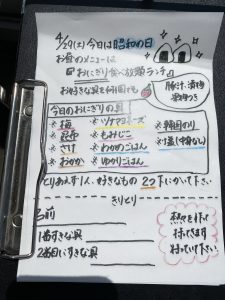 4/29(土)今日は昭和の日
お昼のメニューは
『おにぎり食べ放題ランチ』
お好きな具を何個でも
豚汁、漬物
果物つき
今日のおにぎりの具
*梅 *ツナマヨネーズ *韓国のり
*昆布 *もみじこ *塩(中身なし)
*さけ *わかめごはん
*おかか *ゆかりごはん
とりあえず1人、好きなもの2つ下にかいて下さい
きりとり
名前
1番すきな具
2番目にすきな具
熱々を作って
待ってます
待っていて下さい